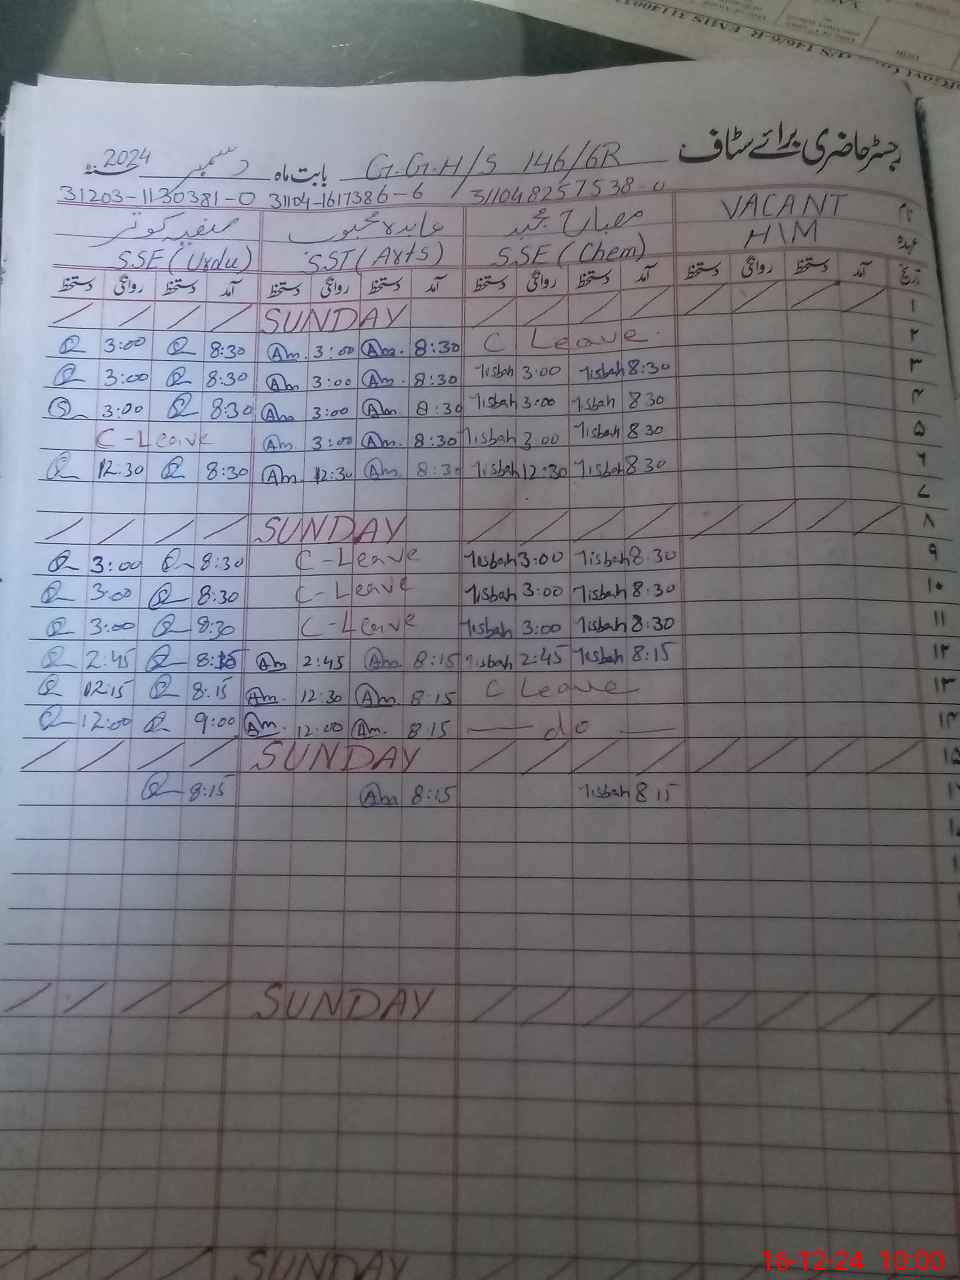 رجسٹر حاضری برائے سٹاف G.G.H/S 146/6R بابت ماہ دسمبر 2024
31203-1130381-0 31104-1617386-6 311048257538-0
نام VACANT مصباح مجید عابدہ محبوب صفیہ کوثر
عہدہ H\M SSE (Chem) SST (Arts) SSE (Urdu)
تاریخ آمد دستخط روانگی دستخط آمد دستخط روانگی دستخط آمد دستخط روانگی دستخط آمد دستخط روانگی دستخط
SUNDAY ۱
3:00 8:30 Am. 3:00 Am. 8:30 C Leave ۲
3:00 8:30 Am 3:00 Am. 8:30 Tisbah 3:00 Tisbah 8:30 ۳
3:00 8:30 Am 3:00 Am. 8:30 Tisbah 3:00 Tisbah 8 30 ۴
C-Leave Am. 3:00 Am. 8:30 Tisbah 3:00 Tisbah 8 30 ۵
12:30 8:30 Am. 12:30 Am. 8:30 Tisbah 12:30 Tisbah 8 30 ۶
۷
SUNDAY ۸
3:00 8:30 C-Leave Tisbah 3:00 Tisbah 8:30 ۹
3:00 8:30 C-Leave Tisbah 3:00 Tisbah 8:30 ۱۰
3:00 8:30 C-Leave Tisbah 3:00 Tisbah 8:30 ۱۱
2:45 8:15 Am 2:45 Am 8:15 Tisbah 2:45 Tisbah 8:15 ۱۲
12:15 8:15 Am. 12:30 Am. 8:15 C Leave ۱۳
12:00 9:00 Am. 12:00 Am. 8:15 — do — ۱۴
SUNDAY ۱۵
8:15 Am 8:15 Tisbah 8 15
SUNDAY
SUNDAY
16-12-24 10:00